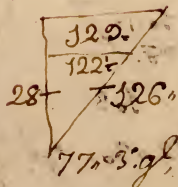 129.
122.
28 126"
77" 3. gl,